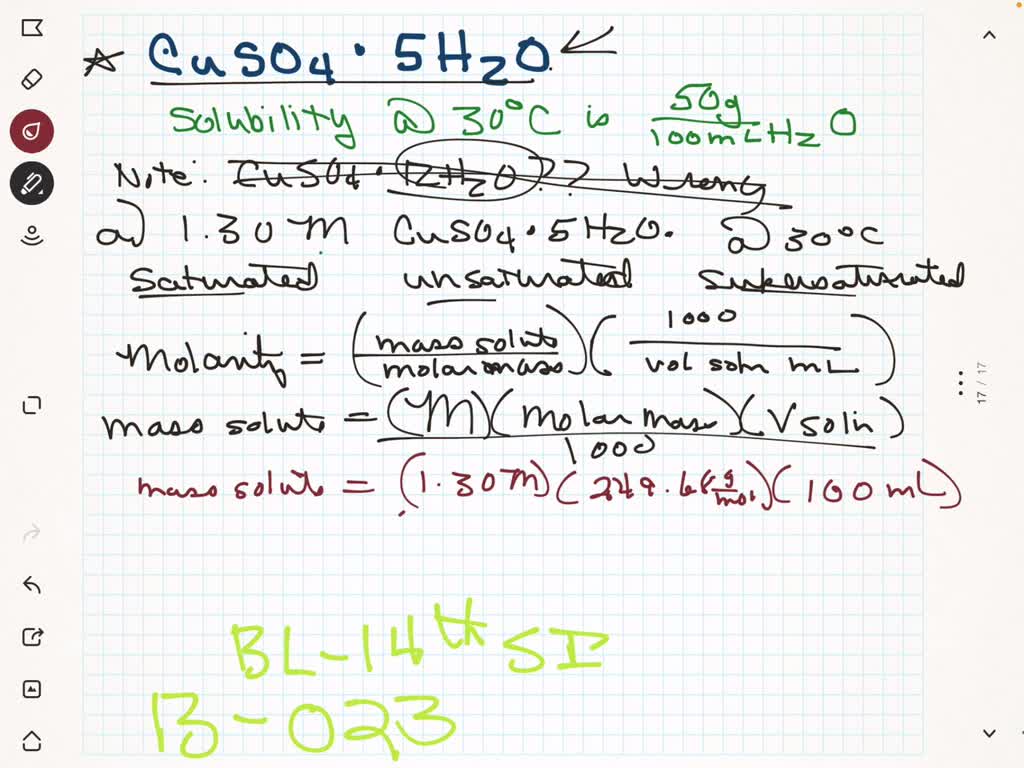 CuSO4 · 5H2O.
Solubility @ 30°C is 50g / 100mL H2O
Note: CuSO4 · 12H2O?? Wrong
a) 1.30 M CuSO4 · 5H2O. @ 30°C
Saturated unsaturated Supersaturated
Molarity = (mass solute / molar mass) (1000 / vol soln mL)
mass solute = (M)(molar mass)(V soln) / 1000
mass solute = (1.30M)(249.68 g/mol)(100mL)
BL-14th SI
B-023
17 / 17